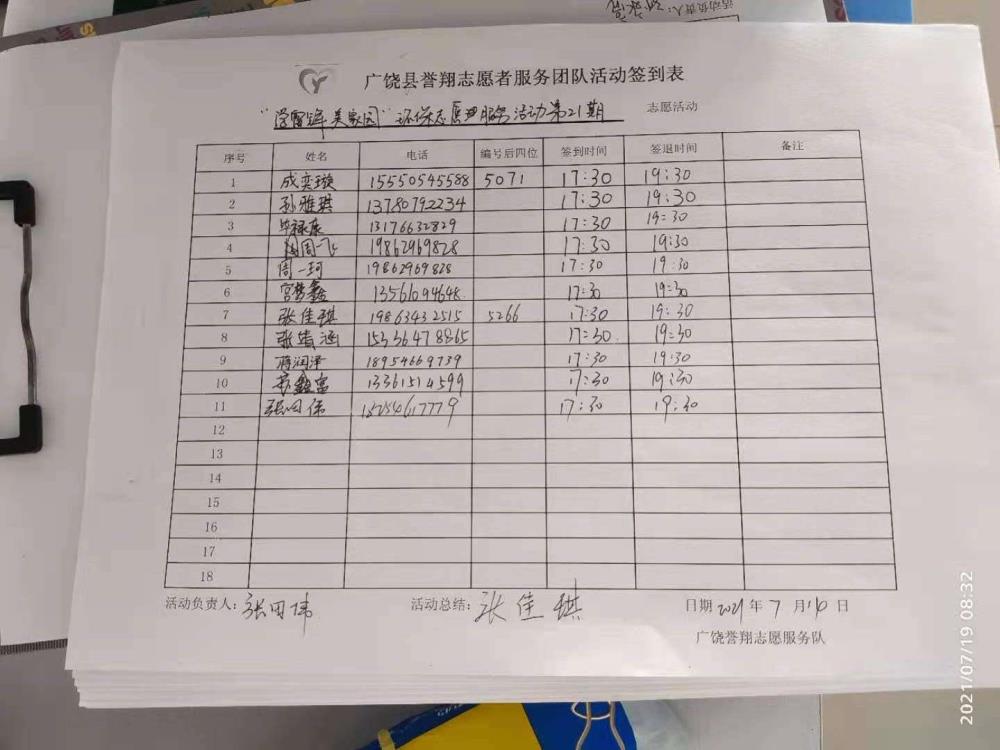 活动负责人:
广饶县誉翔志愿者服务团队活动签到表
"学雷锋 美家园" 环保志愿服务活动第21期 志愿活动
序号 姓名 电话 编号后四位 签到时间 签退时间 备注
1 成奕璇 15550545588 5071 17:30 19:30
2 孙雅琪 13780792234 17:30 19:30
3 毕禄康 13176632829 17:30 19:30
4 周一飞 19862969828 17:30 19:30
5 周一珂 19862969828 17:30 19:30
6 宫梦鑫 13561094648 17:30 19:30
7 张佳琪 19863432515 5266 17:30 19:30
8 张涵 15336478865 17:30 19:30
9 蒋润泽 18954669739 17:30 19:30
10 鑫富 13361514599 17:30 19:30
11 张国伟 15254617779 17:30 19:30
12
13
14
15
16
17
18
活动负责人: 张国伟 活动总结: 张佳琪 日期 2021 年 7 月 日
广饶誉翔志愿服务队
2021/07/19 08:32